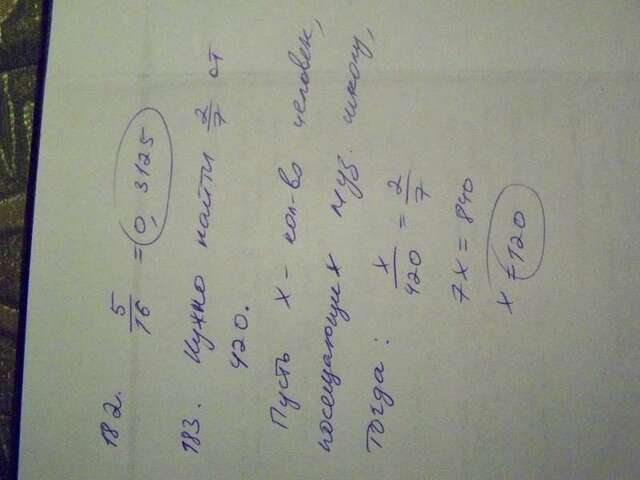 182. 5/16 = 0,3125
183. Нужно найти 2/7 от
420.
Пусть x - кол-во человек,
посещающих муз. школу,
Тогда: x/420 = 2/7
7x = 840
x = 120